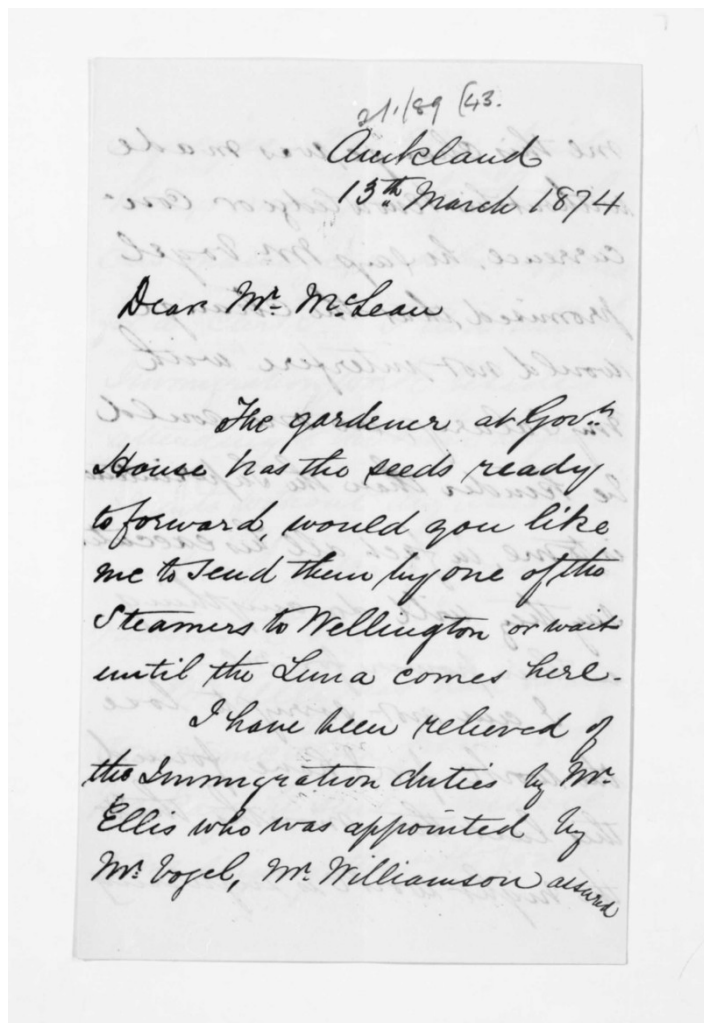 21./89 (43.
Auckland
13th March 1874
Dear Mr. McLean
The gardener at Govt.
House has the seeds ready
to forward, would you like
me to send them by one of the
Steamers to Wellington or wait
until the Luna comes here.
I have been relieved of
the Immigration duties by Mr.
Ellis who was appointed by
Mr. Vogel, Mr. Williamson assured